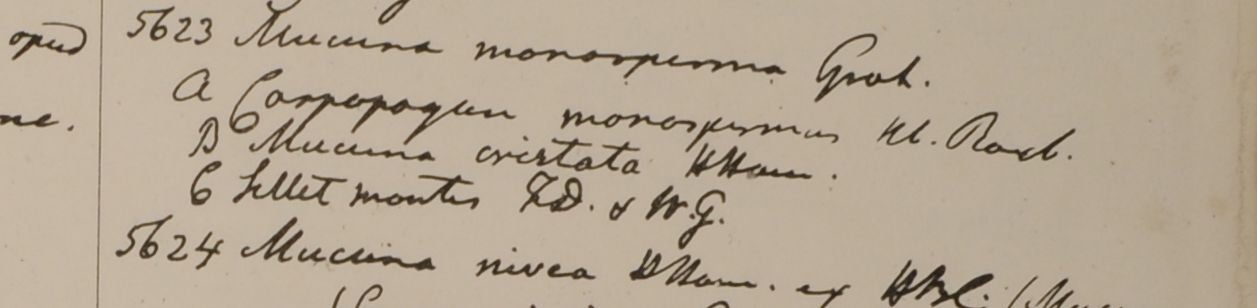 opud
ne.
5623 Mucuna monosperma Grah.
A Carpopogon monospermus Hb. Roxb.
B Mucuna cristata HHam.
C Sillet montis F.D. & W.G.
5624 Mucuna nivea HHam. ex HBC. (Mucu